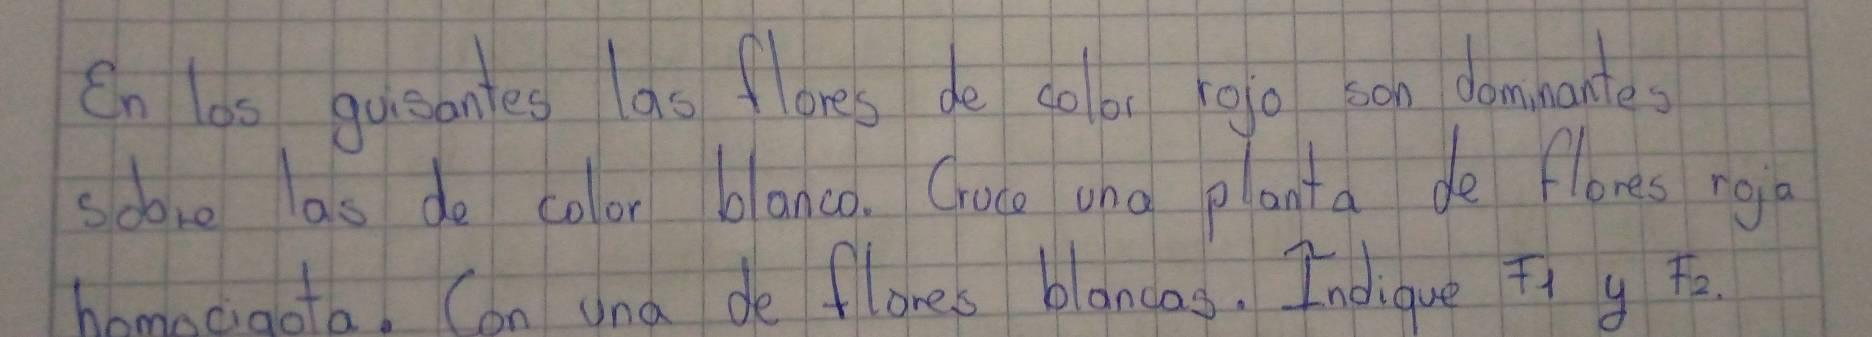 En los guisantes las flores de color rojo son dominantes
sobre las de color blanco. Cruce una planta de flores roja
homocigota. Con una de flores blancas. Indique F1 y F2.